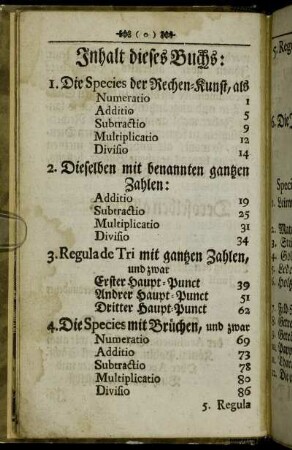 ( o )
Inhalt dieses Buchs:
1. Die Species der Rechen-Kunst, als
Numeratio 1
Additio 5
Subtractio 9
Multiplicatio 12
Divisio 14
2. Dieselben mit benannten gantzen
Zahlen:
Additio 19
Subtractio 25
Multiplicatio 31
Divisio 34
3. Regula de Tri mit gantzen Zahlen,
und zwar
Erster Haupt-Punct 39
Andrer Haupt-Punct 51
Dritter Haupt-Punct 62
4. Die Species mit Brüchen, und zwar
Numeratio 69
Additio 73
Subtractio 78
Multiplicatio 80
Divisio 86
5. Regula